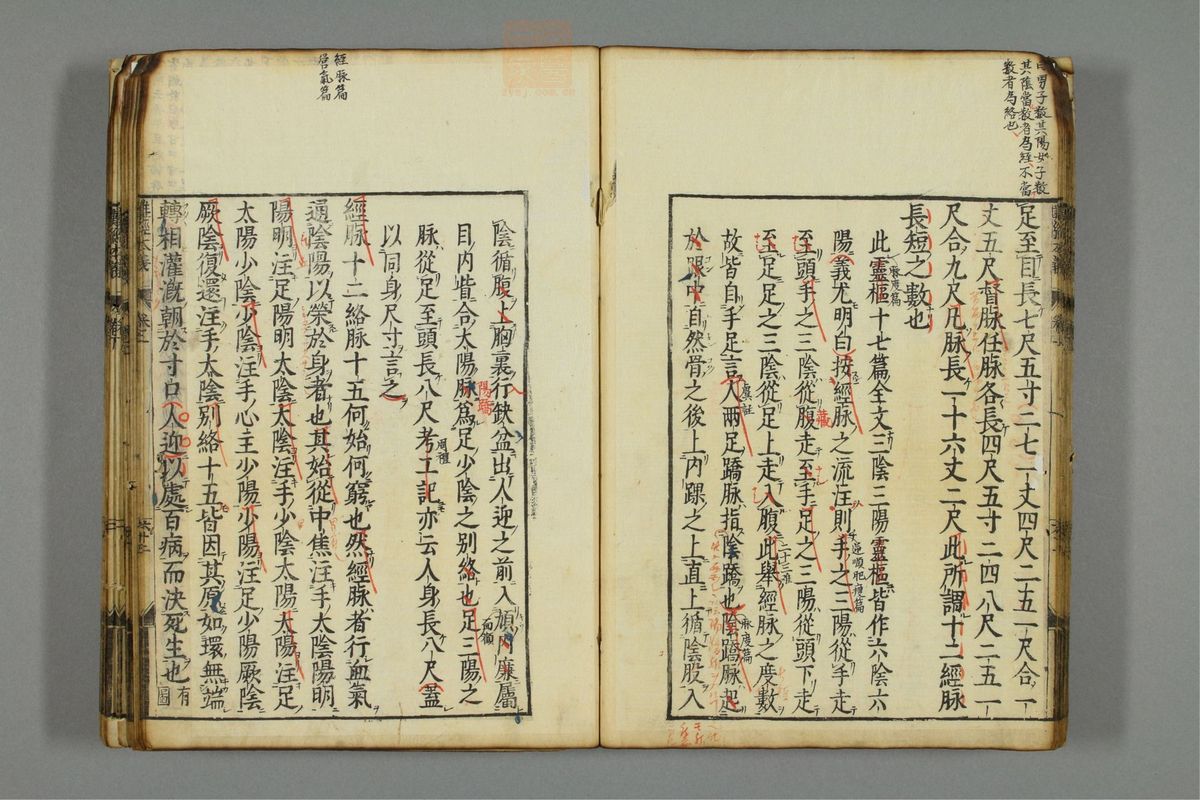 曰男子數其陽女子數
其陰當數者為經不當
數者為絡也
足至目長七尺五寸二七一丈四尺二五一尺合一
丈五尺督脉任脉各長四尺五寸二四八尺二五一
尺合九尺凡脉長一十六丈二尺此所謂十二經脉
長短之數也
此靈樞十七篇全文三陰三陽靈樞皆作六陰六
脉度篇
陽義尤明白按經脉之流注則手之三陽從手走
逆順肥瘦篇
至頭手之三陰從腹走至手足之三陽從頭下走
藏
至足足之三陰從足上走入腹此舉經脉之度數
二十三難
故皆自手足言人兩足蹻脉指陰蹻也陰蹻脉起
虞註
脉度篇
於眼中自然骨之後上內踝之上直上循陰股入
經脉篇
營氣篇
陰循腹上胸裏行缺盆出人迎之前入頄內廉屬
面顴
目內眥合太陽脉為足少陰之別絡也足三陽之
陽蹻
脉從足至頭長八尺考工記亦云人身長八尺蓋
周禮
以同身尺寸言之
經脉十二絡脉十五何始何窮也然經脉者行血氣
通陰陽以榮於身者也其始從中焦注手太陰陽明
陽明注足陽明太陰太陰注手少陰太陽太陽注足
太陽少陰少陰注手心主少陽少陽注足少陽厥陰
厥陰復還注手太陰別絡十五皆因其原如環無端
轉相灌溉朝於寸口人迎以處百病而決死生也有圖